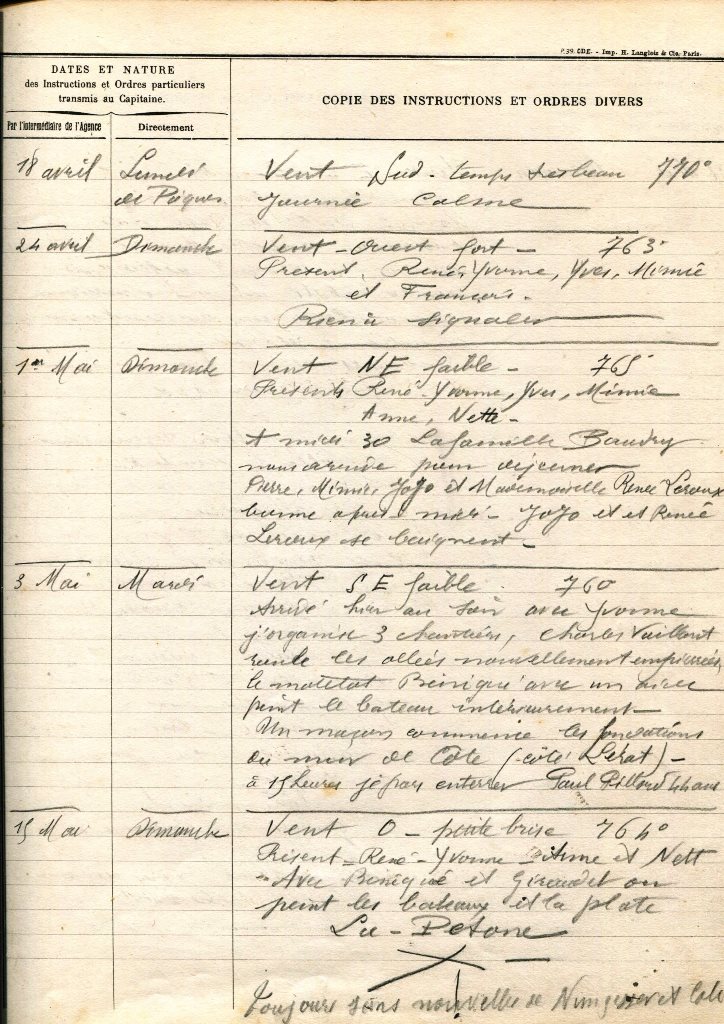 P. 39. CDE. - Imp. H. Langlois & Cie, Paris.
DATES ET NATURE
des Instructions et Ordres particuliers
transmis au Capitaine.
COPIE DES INSTRUCTIONS ET ORDRES DIVERS
Par l'intermédiaire de l'Agence
Directement
18 avril Lundi Vent Sud - temps très beau 770°
de Pâques Journée Calme
24 avril Dimanche Vent - Ouest fort - 763
Présent, René, Yvonne, Yves, Mimie
et François -
Rien à signaler
1er Mai Dimanche Vent NE faible - 765
Présents René - Yvonne, Yves, Mimie
Anne, Nette -
A midi 30 La famille Baudry
nous arrive pour déjeuner
Pierre, Mimie, JoJo et Mademoiselle Renée Leroux
bonne après midi - JoJo et et Renée
Leroux se baignent -
3 Mai Mardi Vent SE faible . 760
Arrivé hier au soir avec Yvonne
j'organise 3 chantiers, Charles Vaillant
roule les allées nouvellement empierrées,
le matelot Béniqué avec un aide
peint le bateau intérieurement -
Un maçon commence les fondations
du mur de Côte (côté Lerat) -
à 15 heures je pars enterrer Paul
15 Mai Dimanche Vent O - petite brise 764°
Présent - René - Yvonne - Anne et Nett
- Avec Béniqué et Giraudet on
peint les bateaux et la plate
La - Detone
Toujours sans nouvelles de Nungesser et Coli